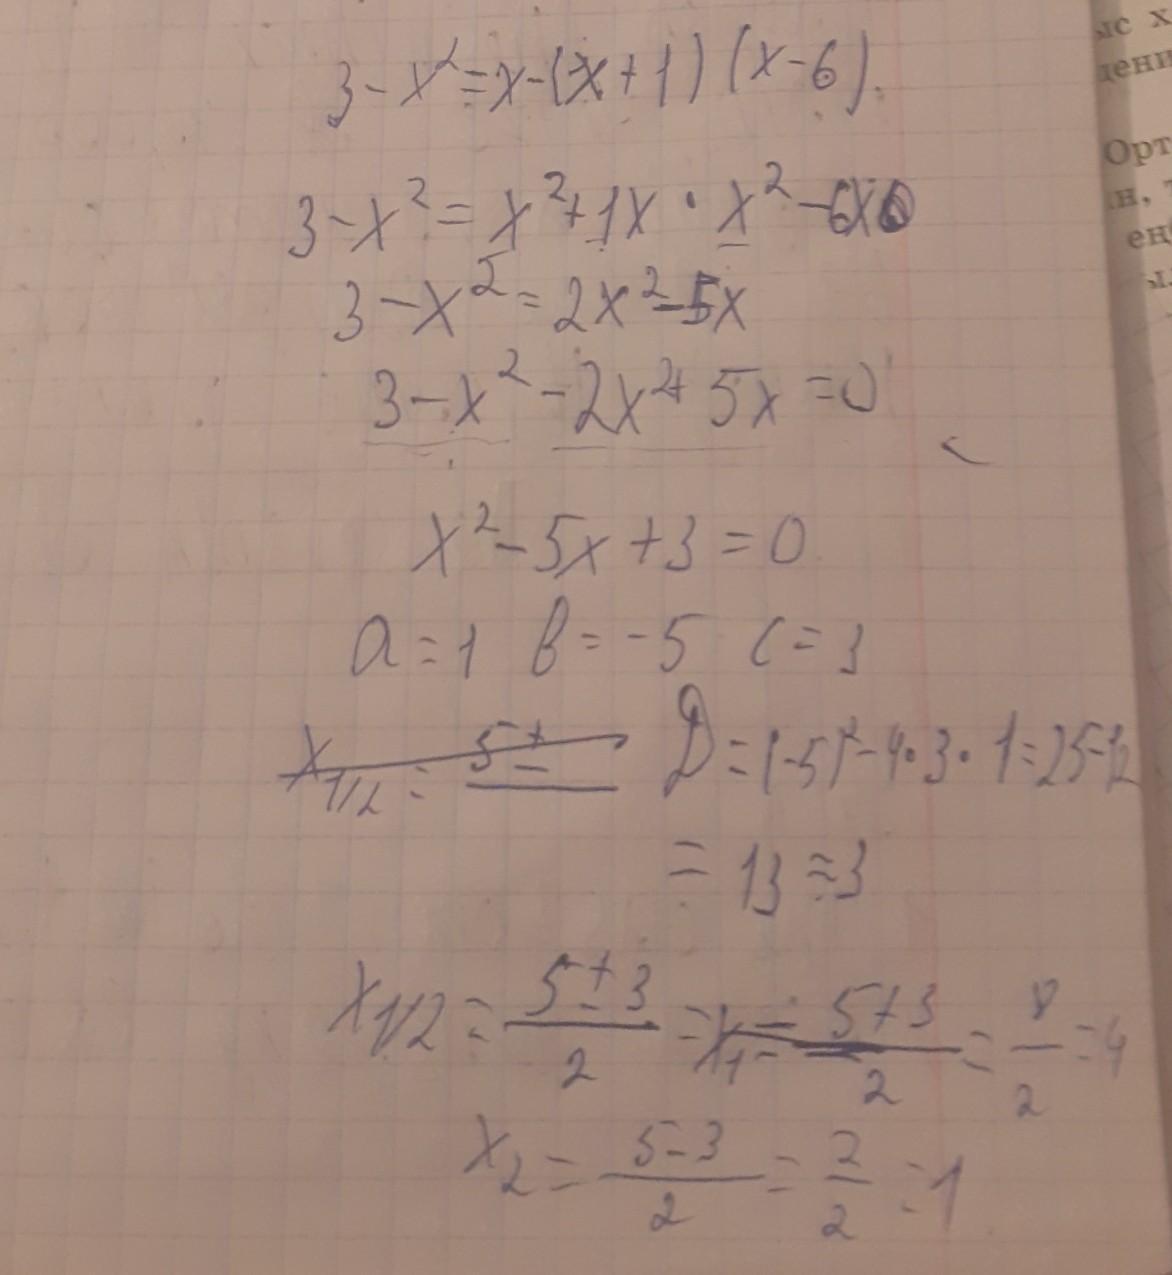 3-x²=x-(x+1)(x-6).
3-x²=x²+1x·x²-6x6
3-x²=2x²-5x
3-x²-2x²+5x=0
x²-5x+3=0
a=1 b=-5 c=3
x1/2= 5± D=(-5)²-4·3·1=25-12
=13≈3
x1/2= 5±3/2 =x1= 5+3/2 = 8/2 =4
x2= 5-3/2 = 2/2 =1
ыс х
дени
Орт
ен